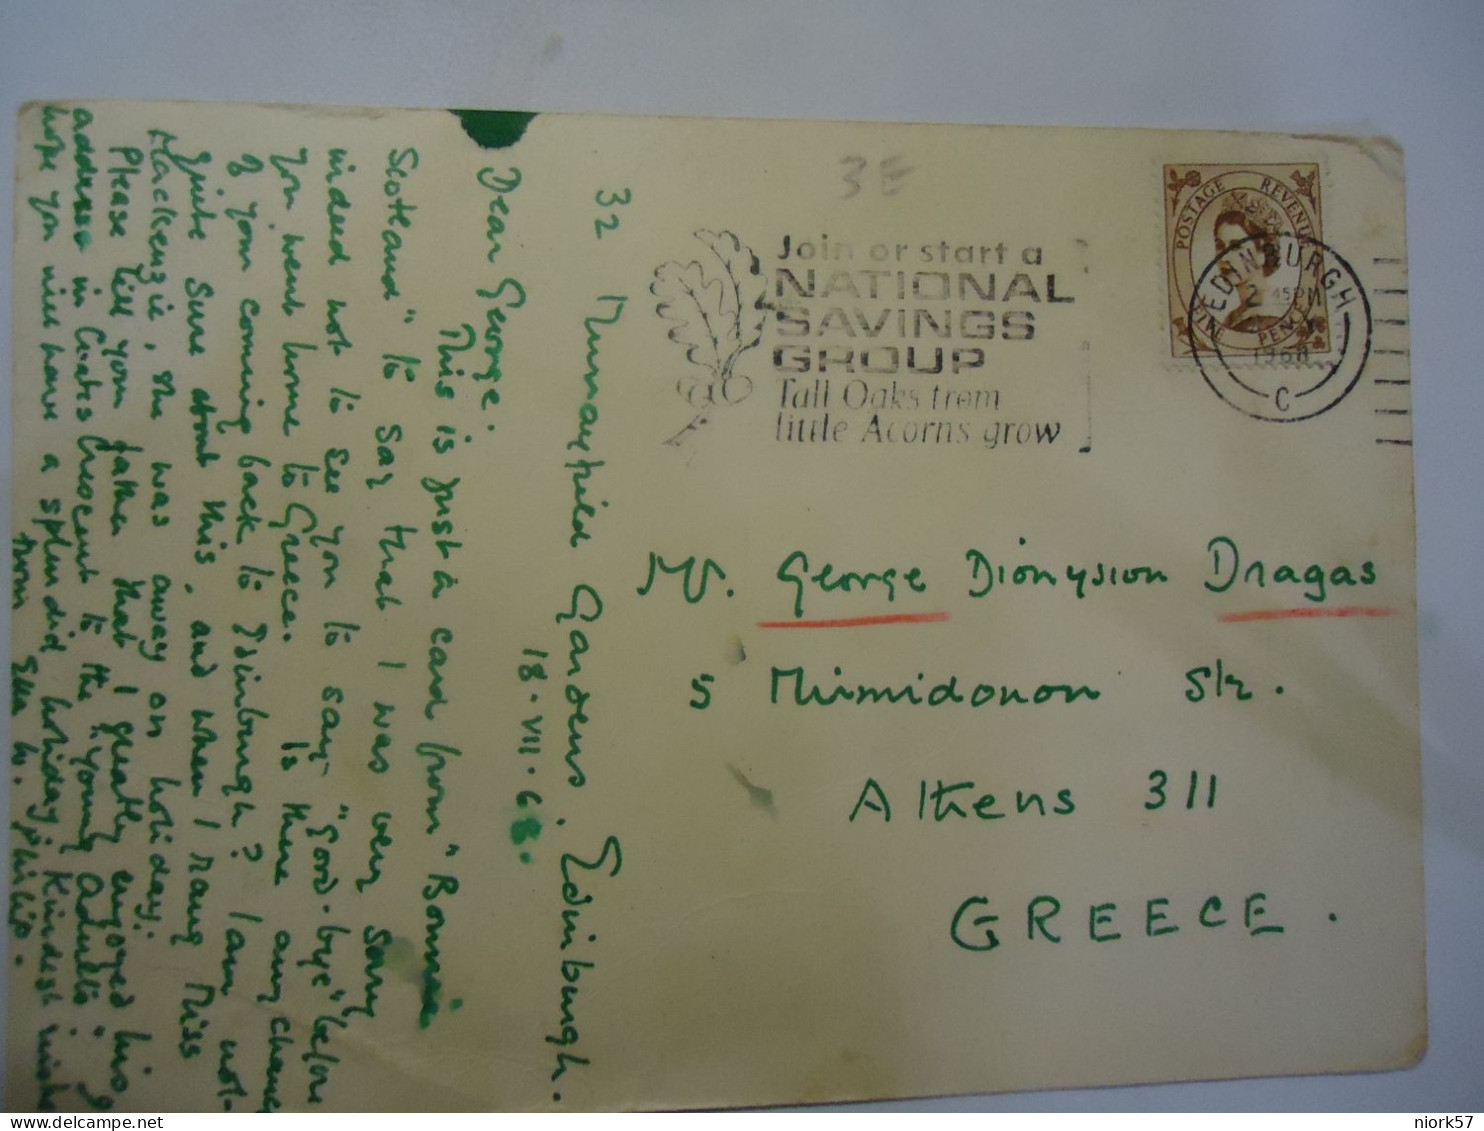 32 Murrayfield Gardens. Edinburgh.
18.VII.68.
Dear George.
This is just a card from "Bonnie
Scotland" to say that I was very sorry
indeed not to see you to say "good-bye" before
you went home to Greece. Is there any chance
of your coming back to Edinburgh? I am not
quite sure about this, and when I rang Miss
Mackenzie, she was away on holiday;
Please tell your father that I greatly enjoyed his
address in Coates Crescent to the "young Adults";
hope you will have a splendid holiday, Kindest wishes
from Ella M. Philip.
3E
Join or start a
NATIONAL
SAVINGS
GROUP
Tall Oaks from
little Acorns grow
POSTAGE REVENUE
NINE PENCE
EDINBURGH
2 45PM
1968
C
Mr. George Dionysiou Dragas
5 Mirmidonon Str.
Athens 311
GREECE.
niork57